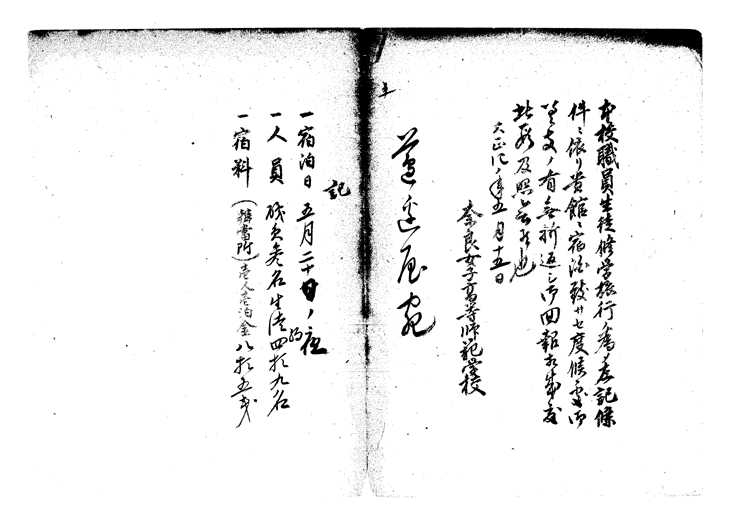 本校職員生徒修学旅行ノ為メ左記條
件ニ依リ貴館ニ宿泊致サセ度候處御
差支ノ有無折返シ御回報相成度
此段及照会候也
大正 年五月十五日
奈良女子高等師範学校
屋宛
記
一宿泊日 五月二十日ノ夜
一人員 職員参名生徒約四拾九名
一宿料 (辨當附)壱人壱泊金八拾五銭